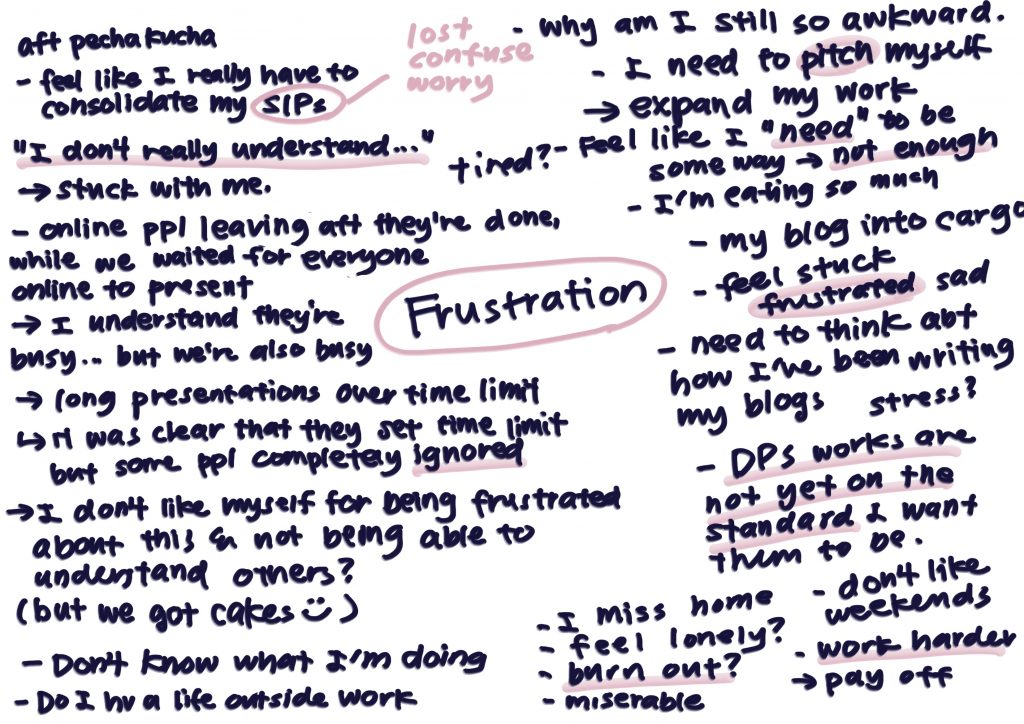 aft pechakucha
- feel like I really have to
consolidate my SIPs
lost
confuse
worry
"I don't really understand..."
→ stuck with me.
tired?
- online ppl leaving aft they're done,
while we waited for everyone
online to present
→ I understand they're
busy... but we're also busy
→ long presentations over time limit
↳ it was clear that they set time limit
but some ppl completely ignored
→ I don't like myself for being frustrated
about this & not being able to
understand others?
(but we got cakes :))
- Don't know what I'm doing
- Do I hv a life outside work
Frustration
- why am I still so awkward.
- I need to pitch myself
→ expand my work
- Feel like I "need" to be
some way → not enough
- I'm eating so much
- my blog into cargo
- feel stuck
frustrated sad
- need to think abt
how I've been writing
my blogs stress?
- DPs works are
not yet on the
standard I want
them to be.
- don't like
weekends
- work harder
→ pay off
- I miss home
- feel lonely?
- burn out?
- miserable